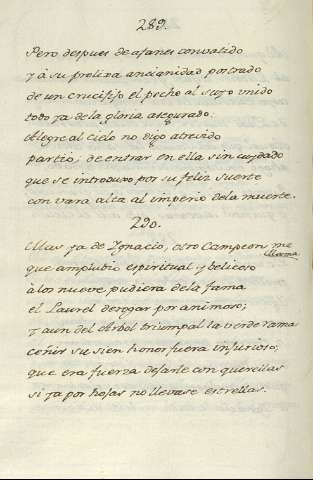 289.
Pero despues de afanes convatido
y à su prolixa ancianidad postrado
de un crucifixo el pecho al suyo unido
todo ya de la gloria asegurado:
Alegre al cielo no digo atrevido
partio; de entrar en ella sin cuydado
que se introduxo por su feliz suerte
con vara alta al imperio dela muerte.
290.
Mas ya de Ygnacio, otro Campeon me
llama
que amplubio espiritual y belicoso
à los nueve pudiera de la fama
el Laurel derogar por animoso;
Y aun del Arbol triumpal la verde rama
ceñir su sien honor fuera injurioso;
que era fuerza dejarle con querellas
si ya por hojas no llevase estrellas.